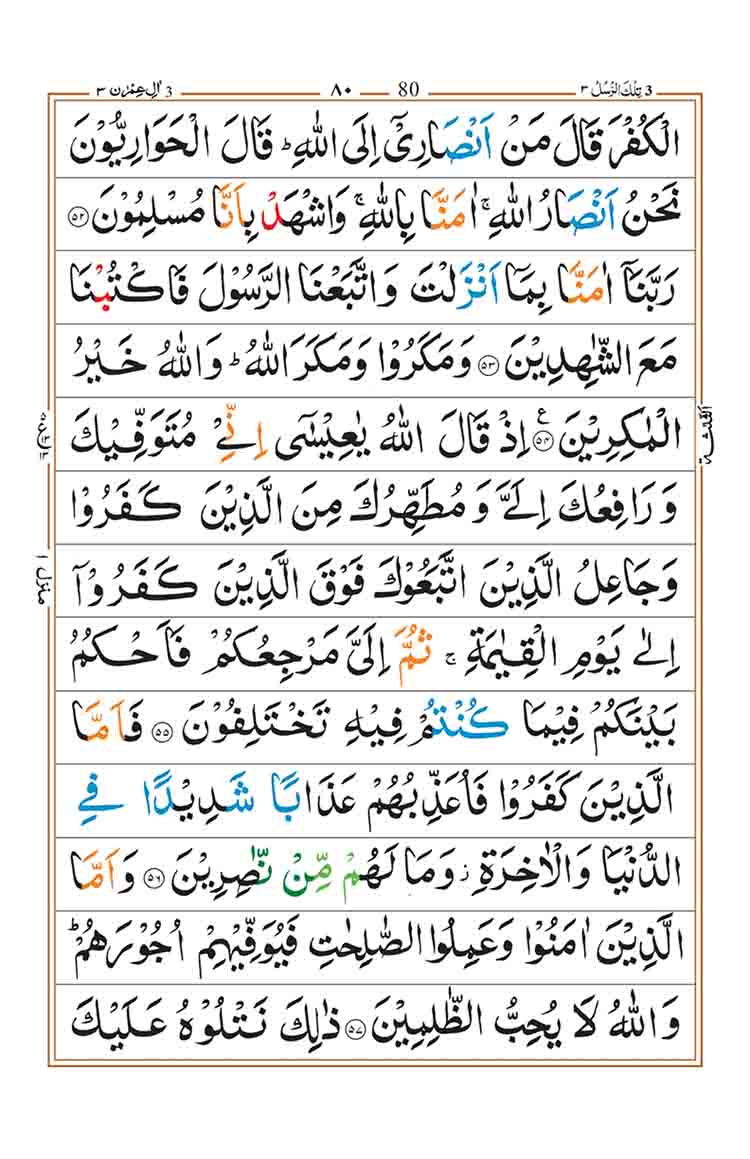 3 تِلْكَ الرُّسُلُ ٣
80 ٨٠
3 اٰلِ عِمْرٰن ٣
الْكُفْرَ قَالَ مَنْ اَنْصَارِىْۤ اِلَى اللّٰهِ‌ؕ قَالَ الْحَوَارِيُّوْنَ
نَحْنُ اَنْصَارُ اللّٰهِ‌ۚ اٰمَنَّا بِاللّٰهِ‌ۚ وَاشْهَدْ بِاَنَّا مُسْلِمُوْنَ ۝٥٢
رَبَّنَاۤ اٰمَنَّا بِمَاۤ اَنْزَلْتَ وَاتَّبَعْنَا الرَّسُوْلَ فَاكْتُبْنَا
مَعَ الشّٰهِدِيْنَ ۝٥٣ وَمَكَرُوْا وَمَكَرَ اللّٰهُ‌ؕ وَاللّٰهُ خَيْرُ
الْمٰكِرِيْنَ ۝٥٤ ع اِذْ قَالَ اللّٰهُ يٰعِيْسٰۤى اِنِّىْ مُتَوَفِّيْكَ
وَرَافِعُكَ اِلَىَّ وَمُطَهِّرُكَ مِنَ الَّذِيْنَ كَفَرُوْا
وَجَاعِلُ الَّذِيْنَ اتَّبَعُوْكَ فَوْقَ الَّذِيْنَ كَفَرُوْۤا
اِلٰى يَوْمِ الْقِيٰمَةِ‌ۚ ثُمَّ اِلَىَّ مَرْجِعُكُمْ فَاَحْكُمُ
بَيْنَكُمْ فِيْمَا كُنْتُمْ فِيْهِ تَخْتَلِفُوْنَ ۝٥٥ فَاَمَّا
الَّذِيْنَ كَفَرُوْا فَاُعَذِّبُهُمْ عَذَابًا شَدِيْدًا فِى
الدُّنْيَا وَالْاٰخِرَةِ‌ز وَمَا لَهُمْ مِّنْ نّٰصِرِيْنَ ۝٥٦ وَاَمَّا
الَّذِيْنَ اٰمَنُوْا وَعَمِلُوا الصّٰلِحٰتِ فَيُوَفِّيْهِمْ اُجُوْرَهُمْ‌ؕ
وَاللّٰهُ لَا يُحِبُّ الظّٰلِمِيْنَ ۝٥٧ ذٰلِكَ نَتْلُوْهُ عَلَيْكَ
الثلٰثة
منزل ١